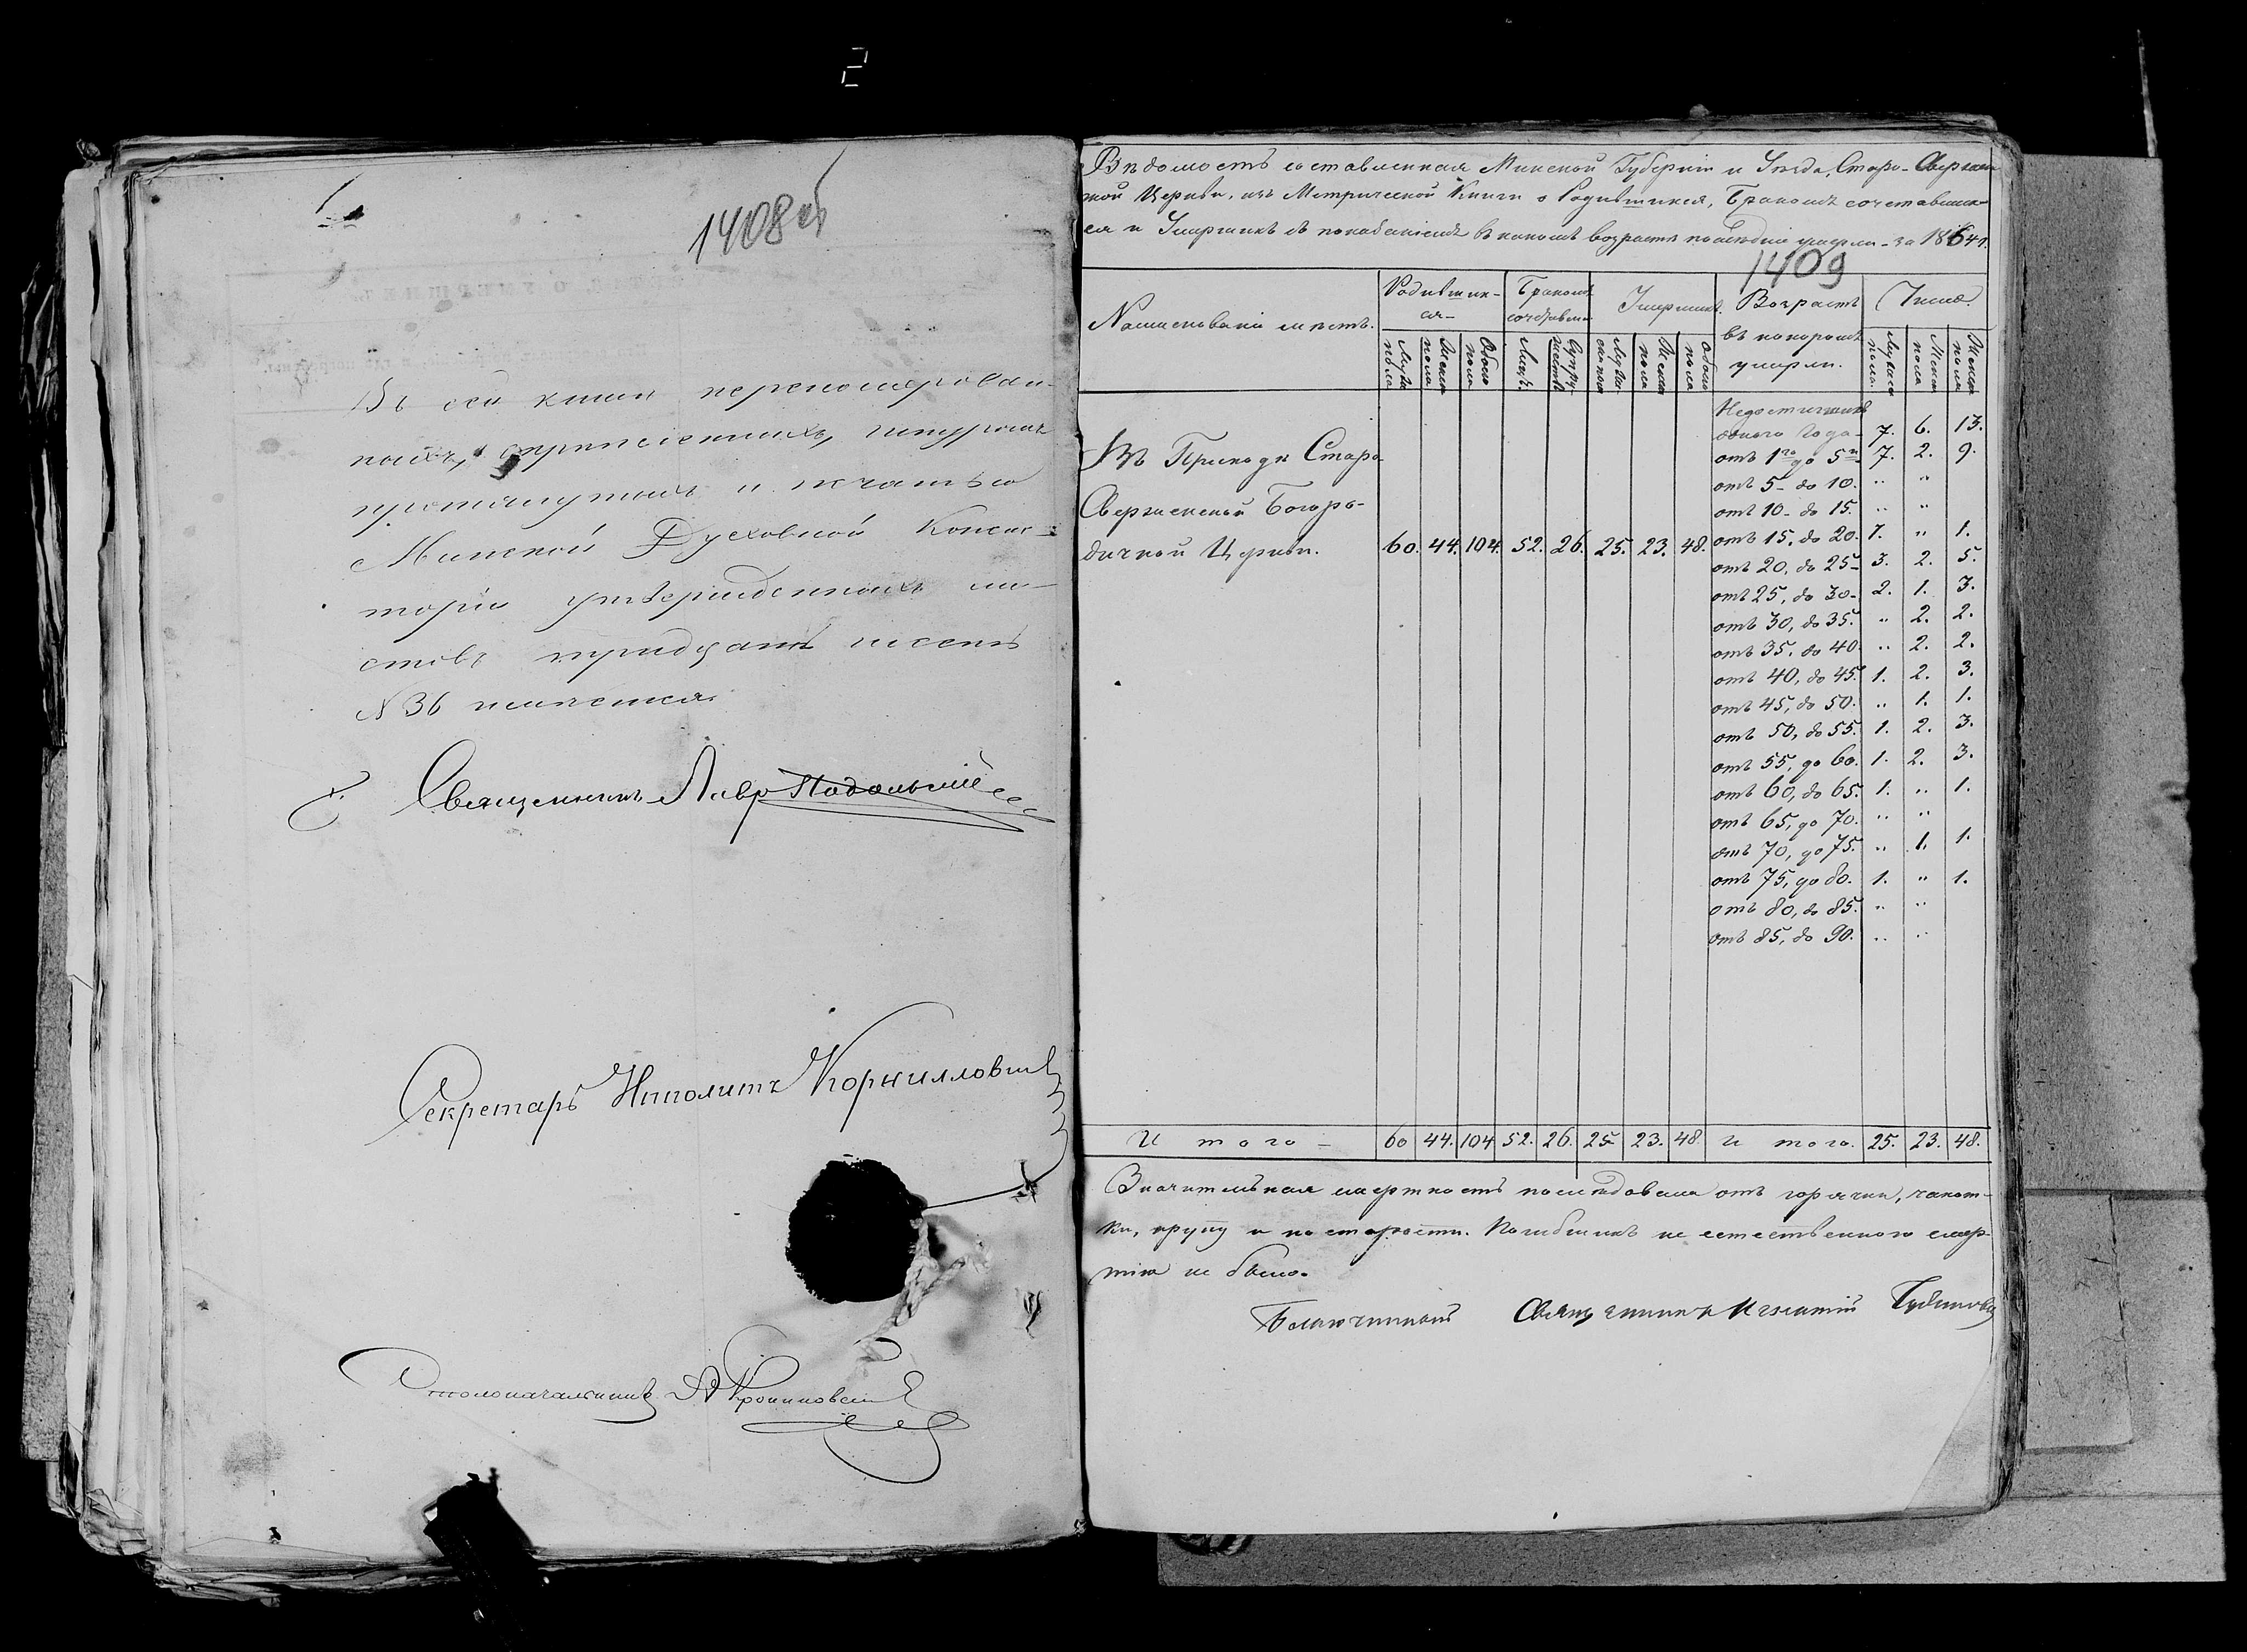 2
1408 об
Въ сей книгѣ перенумерован-
ныхъ, скрѣпленныхъ, шнуромъ
протянутыхъ и печатью
Минской Духовной Консис-
торіи утвержденныхъ ли-
стовъ тридцать шесть
№ 36 числится
Священникъ Лавръ
Секретарь Ипполитъ Корнилловичъ
Столоначальникъ
Вѣдомость составленная Минской Губерніи и Уѣзда, Старо-Свержен-
ской Церкви, изъ Метрической Книги о Родившихся, Бракомъ сочетавших-
ся и Умершихъ съ показаніемъ въ какомъ возрастѣ послѣдніе умерли - за 1864 г.
1409
Наименованіе мѣстъ. Родивших-ся- Бракомъ сочетавши Умершихъ. Возрастъ въ которомъ умерли. Число.
Муж. пола Женск. пола Обоего пола Лицъ. Супружествъ Мужескаго Женск. пола Обоего пола Мужеск. пола. Женск. пола
Недостигшихъ
одного года - 7. 6. 13.
отъ 1го до 5ти 7. 2. 9.
отъ 5 - до 10. " "
отъ 10 - до 15. " "
отъ 15, до 20. 1. " 1.
отъ 20, до 25 - 3. 2. 5.
отъ 25, до 30 - 2. 1. 3.
отъ 30, до 35. " 2. 2.
отъ 35, до 40. " 2. 2.
отъ 40, до 45. 1. 2. 3.
отъ 45, до 50. " 1. 1.
отъ 50, до 55. 1. 2. 3.
отъ 55, до 60. 1. 2. 3.
отъ 60, до 65. 1. " 1.
отъ 65, до 70. " "
отъ 70, до 75. " 1. 1.
отъ 75, до 80. 1. " 1.
отъ 80, до 85. " "
отъ 85, до 90. " "
Въ Приходѣ Старо-
Сверженской Богоро-
дичной Церкви. 60. 44. 104. 52. 26. 25. 23. 48.
И того - 60 44. 104 52. 26. 25 23. 48. И того. 25. 23. 48.
Значительная смертность послѣдовала отъ горячки, чахот-
ки, крупу и по старости. Погибшихъ не естественною смер-
тію не было.
Благочинный Священникъ Игнатій